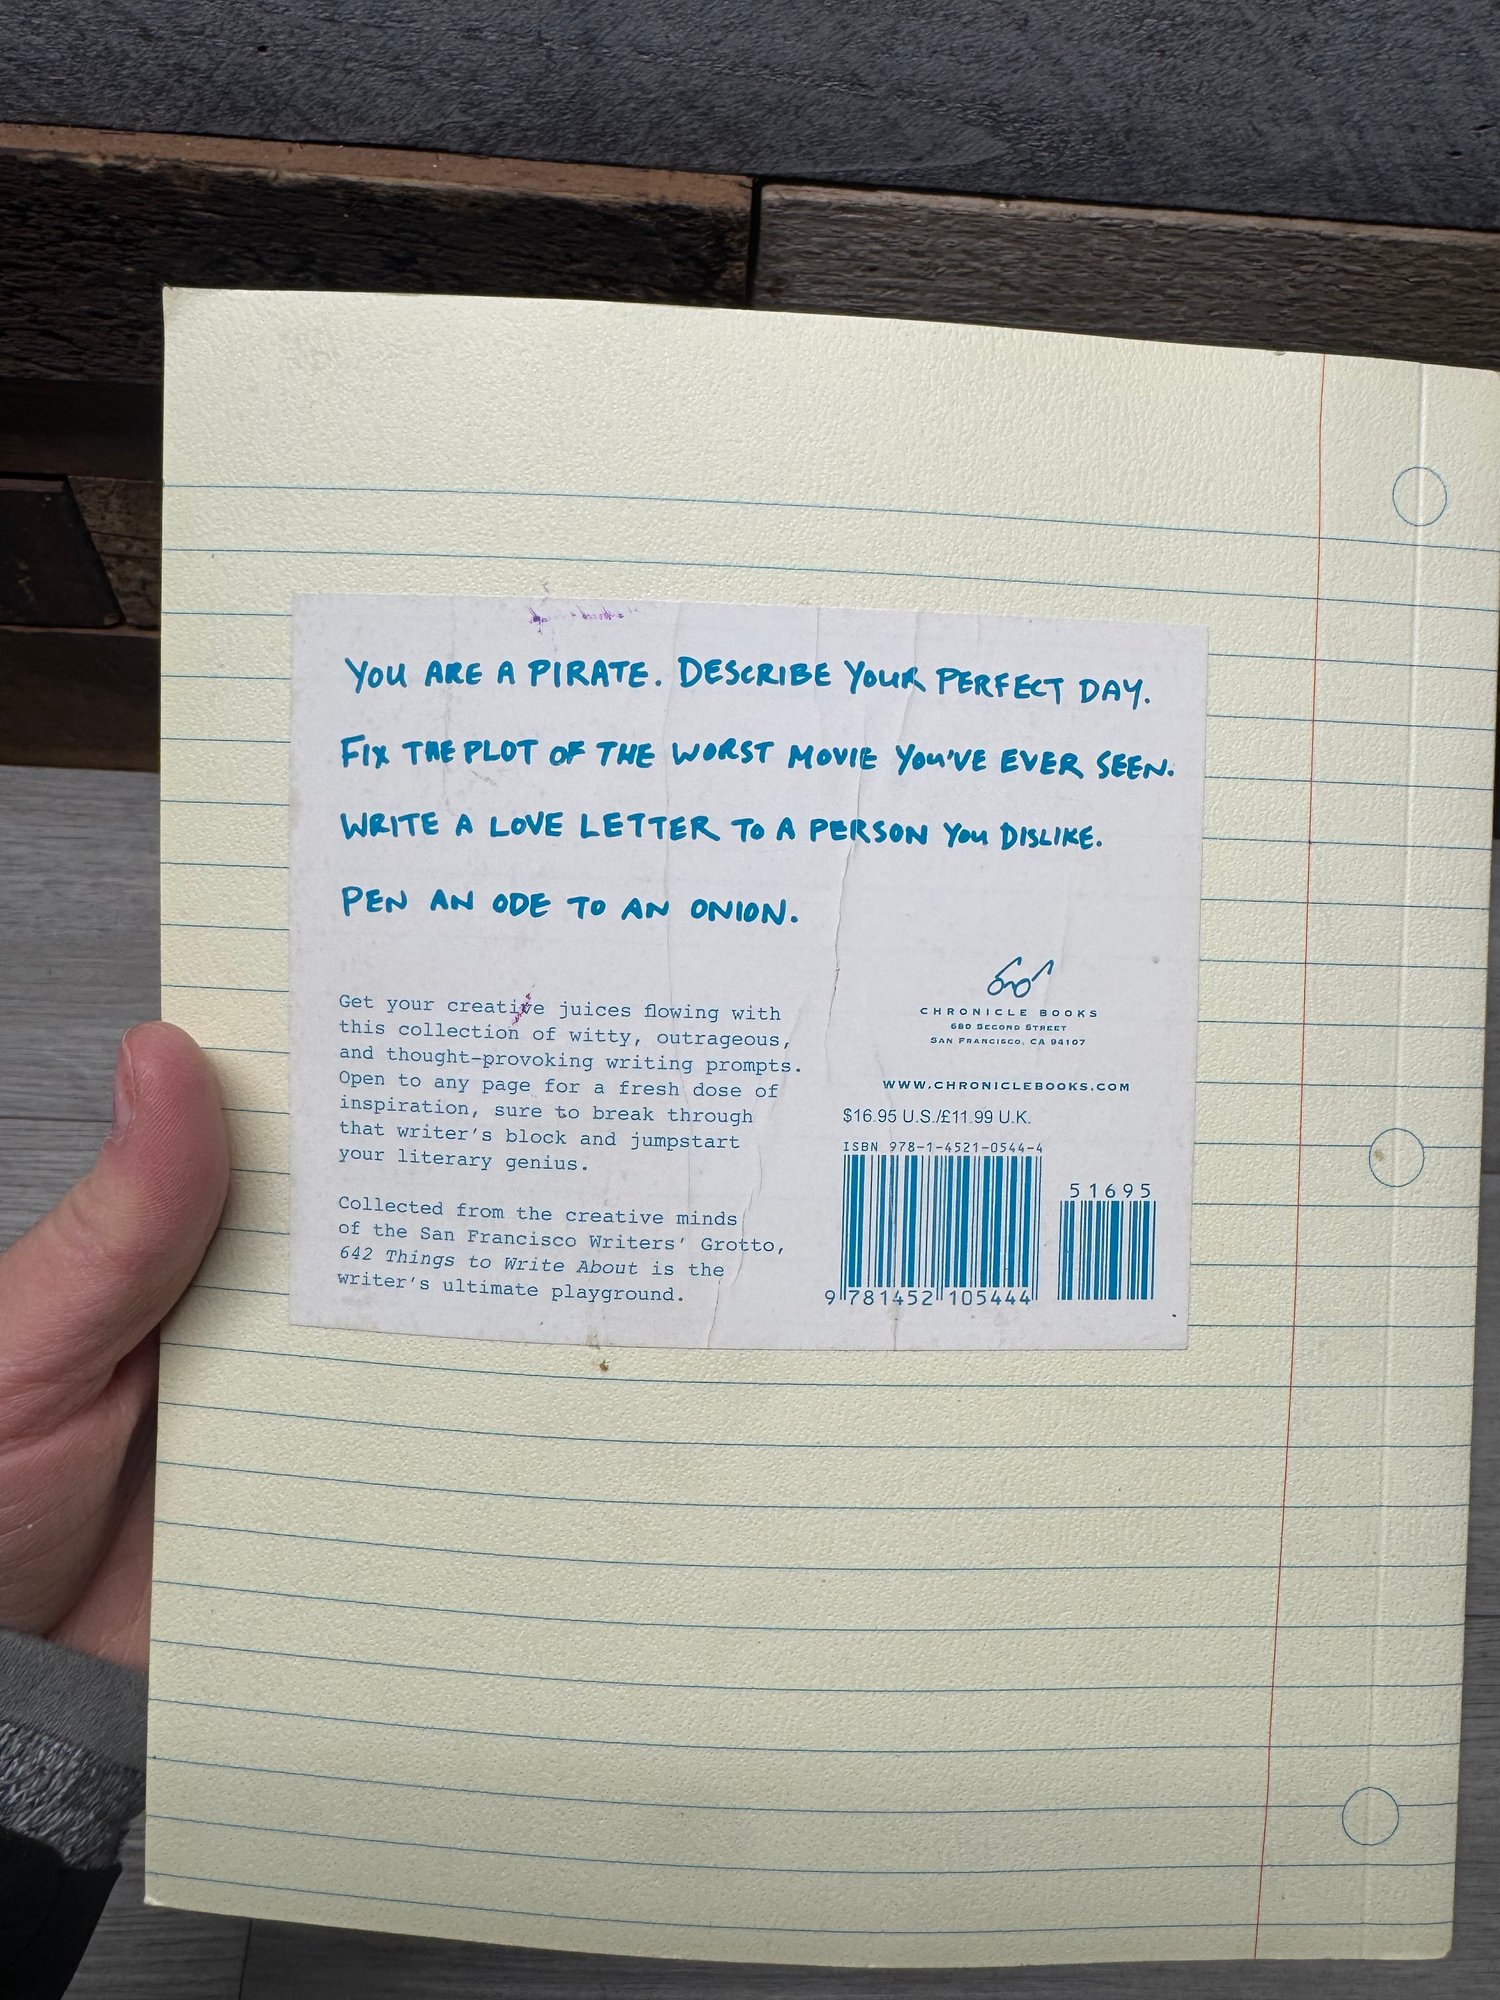 YOU ARE A PIRATE. DESCRIBE YOUR PERFECT DAY.
FIX THE PLOT OF THE WORST MOVIE YOU'VE EVER SEEN.
WRITE A LOVE LETTER TO A PERSON YOU DISLIKE.
PEN AN ODE TO AN ONION.
Get your creative juices flowing with
this collection of witty, outrageous,
and thought-provoking writing prompts.
Open to any page for a fresh dose of
inspiration, sure to break through
that writer's block and jumpstart
your literary genius.
Collected from the creative minds
of the San Francisco Writers' Grotto,
642 Things to Write About is the
writer's ultimate playground.
CHRONICLE BOOKS
680 SECOND STREET
SAN FRANCISCO, CA 94107
WWW.CHRONICLEBOOKS.COM
$16.95 U.S./£11.99 U.K.
ISBN 978-1-4521-0544-4
51695
9 781452 105444